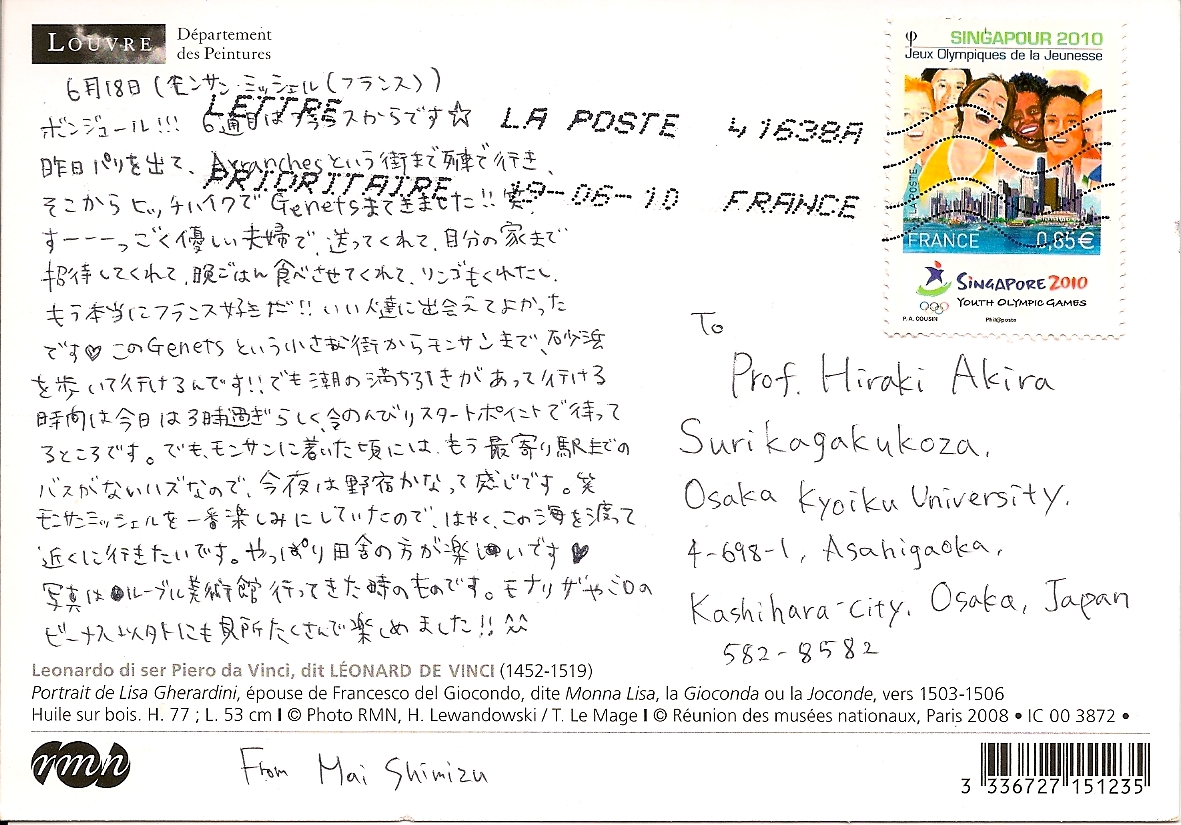 LOUVRE
Département
des Peintures
6月18日(モンサン・ミッシェル(フランス))
ボンジュール!!! 6週目はフランスからです☆
昨日パリを出て、Avranchesという街まで列車で行き、
そこからヒッチハイクでGenetsまできました!!笑
すーーーっごく優しい夫婦で、送ってくれて、自分の家まで
招待してくれて、晩ごはん食べさせてくれて、リンゴもくれたし、
もう本当にフランス好きだ!! いい人達に出会えてよかった
です♡ このGenetsという小さな街からモンサンまで、砂浜
を歩いて行けるんです!! でも潮の満ち引きがあって行ける
時間は今日は3時過ぎらしく、今のんびりスタートポイントで待って
るところです。でも、モンサンに着いた頃には、もう最寄り駅までの
バスがないハズなので、今夜は野宿かなって感じです。笑
モンサンミッシェルを一番楽しみにしていたので、はやく、この海を渡って
近くに行きたいです。やっぱり田舎の方が楽しいです♥
写真はルーブル美術館行ってきた時のものです。モナリザやミロの
ビーナス以外にも見所たくさんで楽しめました!! ^^
LETTRE
PRIORITAIRE
LA POSTE 41638A
9-06-10 FRANCE
φ SINGAPOUR 2010
Jeux Olympiques de la Jeunesse
LA POSTE
FRANCE 0,85€
SINGAPORE 2010
YOUTH OLYMPIC GAMES
P. A. COUSIN Phil@poste
To
Prof. Hiraki Akira
Surikagakukoza,
Osaka Kyoiku University.
4-698-1, Asahigaoka,
Kashihara-city. Osaka, Japan
582-8582
Leonardo di ser Piero da Vinci, dit LÉONARD DE VINCI (1452-1519)
Portrait de Lisa Gherardini, épouse de Francesco del Giocondo, dite Monna Lisa, la Gioconda ou la Joconde, vers 1503-1506
Huile sur bois. H. 77 ; L. 53 cm I © Photo RMN, H. Lewandowski / T. Le Mage I © Réunion des musées nationaux, Paris 2008 • IC 00 3872 •
rmn
From Mai Shimizu
3 336727 151235